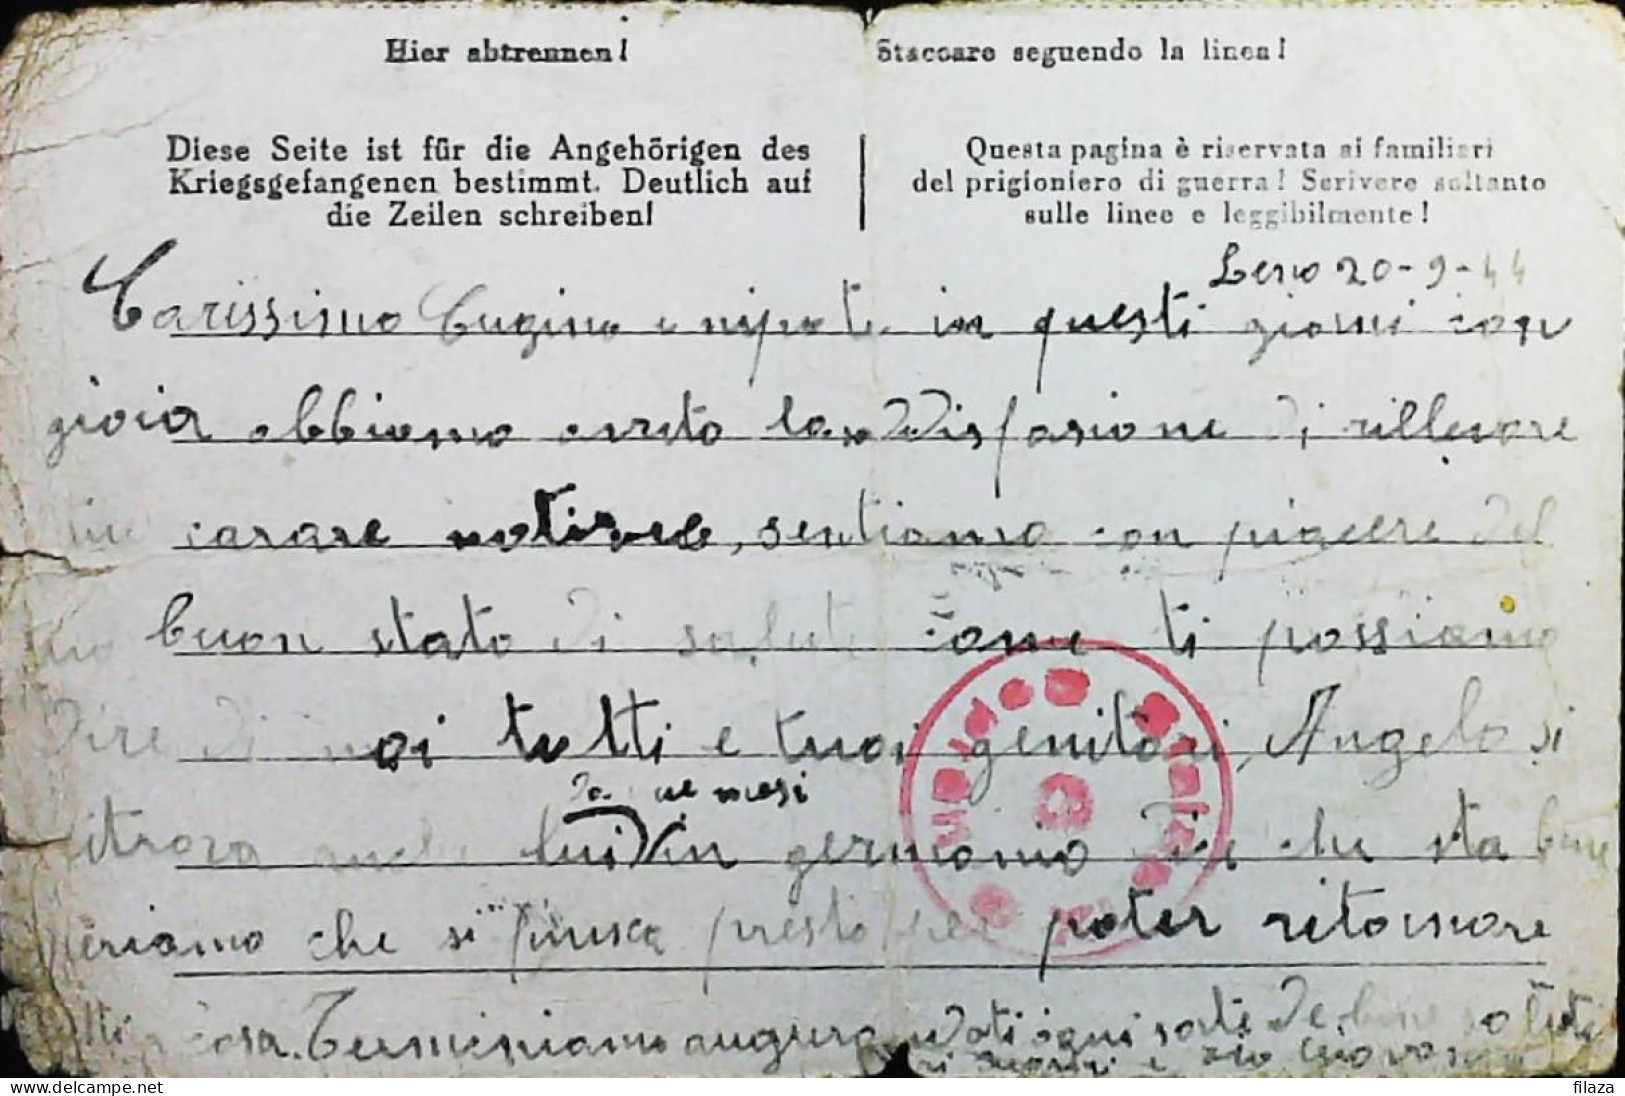 Hier abtrennen!
Staccare seguendo la linea!
Diese Seite ist für die Angehörigen des
Kriegsgefangenen bestimmt. Deutlich auf
die Zeilen schreiben!
Questa pagina è riservata ai familiari
del prigioniero di guerra! Scrivere soltanto
sulle linee e leggibilmente!
Leno 20-9-44
Carissimo Cugino e nipote in questi giorni con
gioia abbiamo avuto la sodisfasione di rillevare
carare notizie, sentiamo con piacere del
buon stato di salute come ti possiamo
dire di noi tutti e tuoi genitori, Angelo si
da mesi
itrova anche lui in germania dice che sta bene
eriamo che si finisca presto per poter ritornare
casa. Terminiamo augurandoti ogni sorte di bene saluti
zio Giovanni
filaza